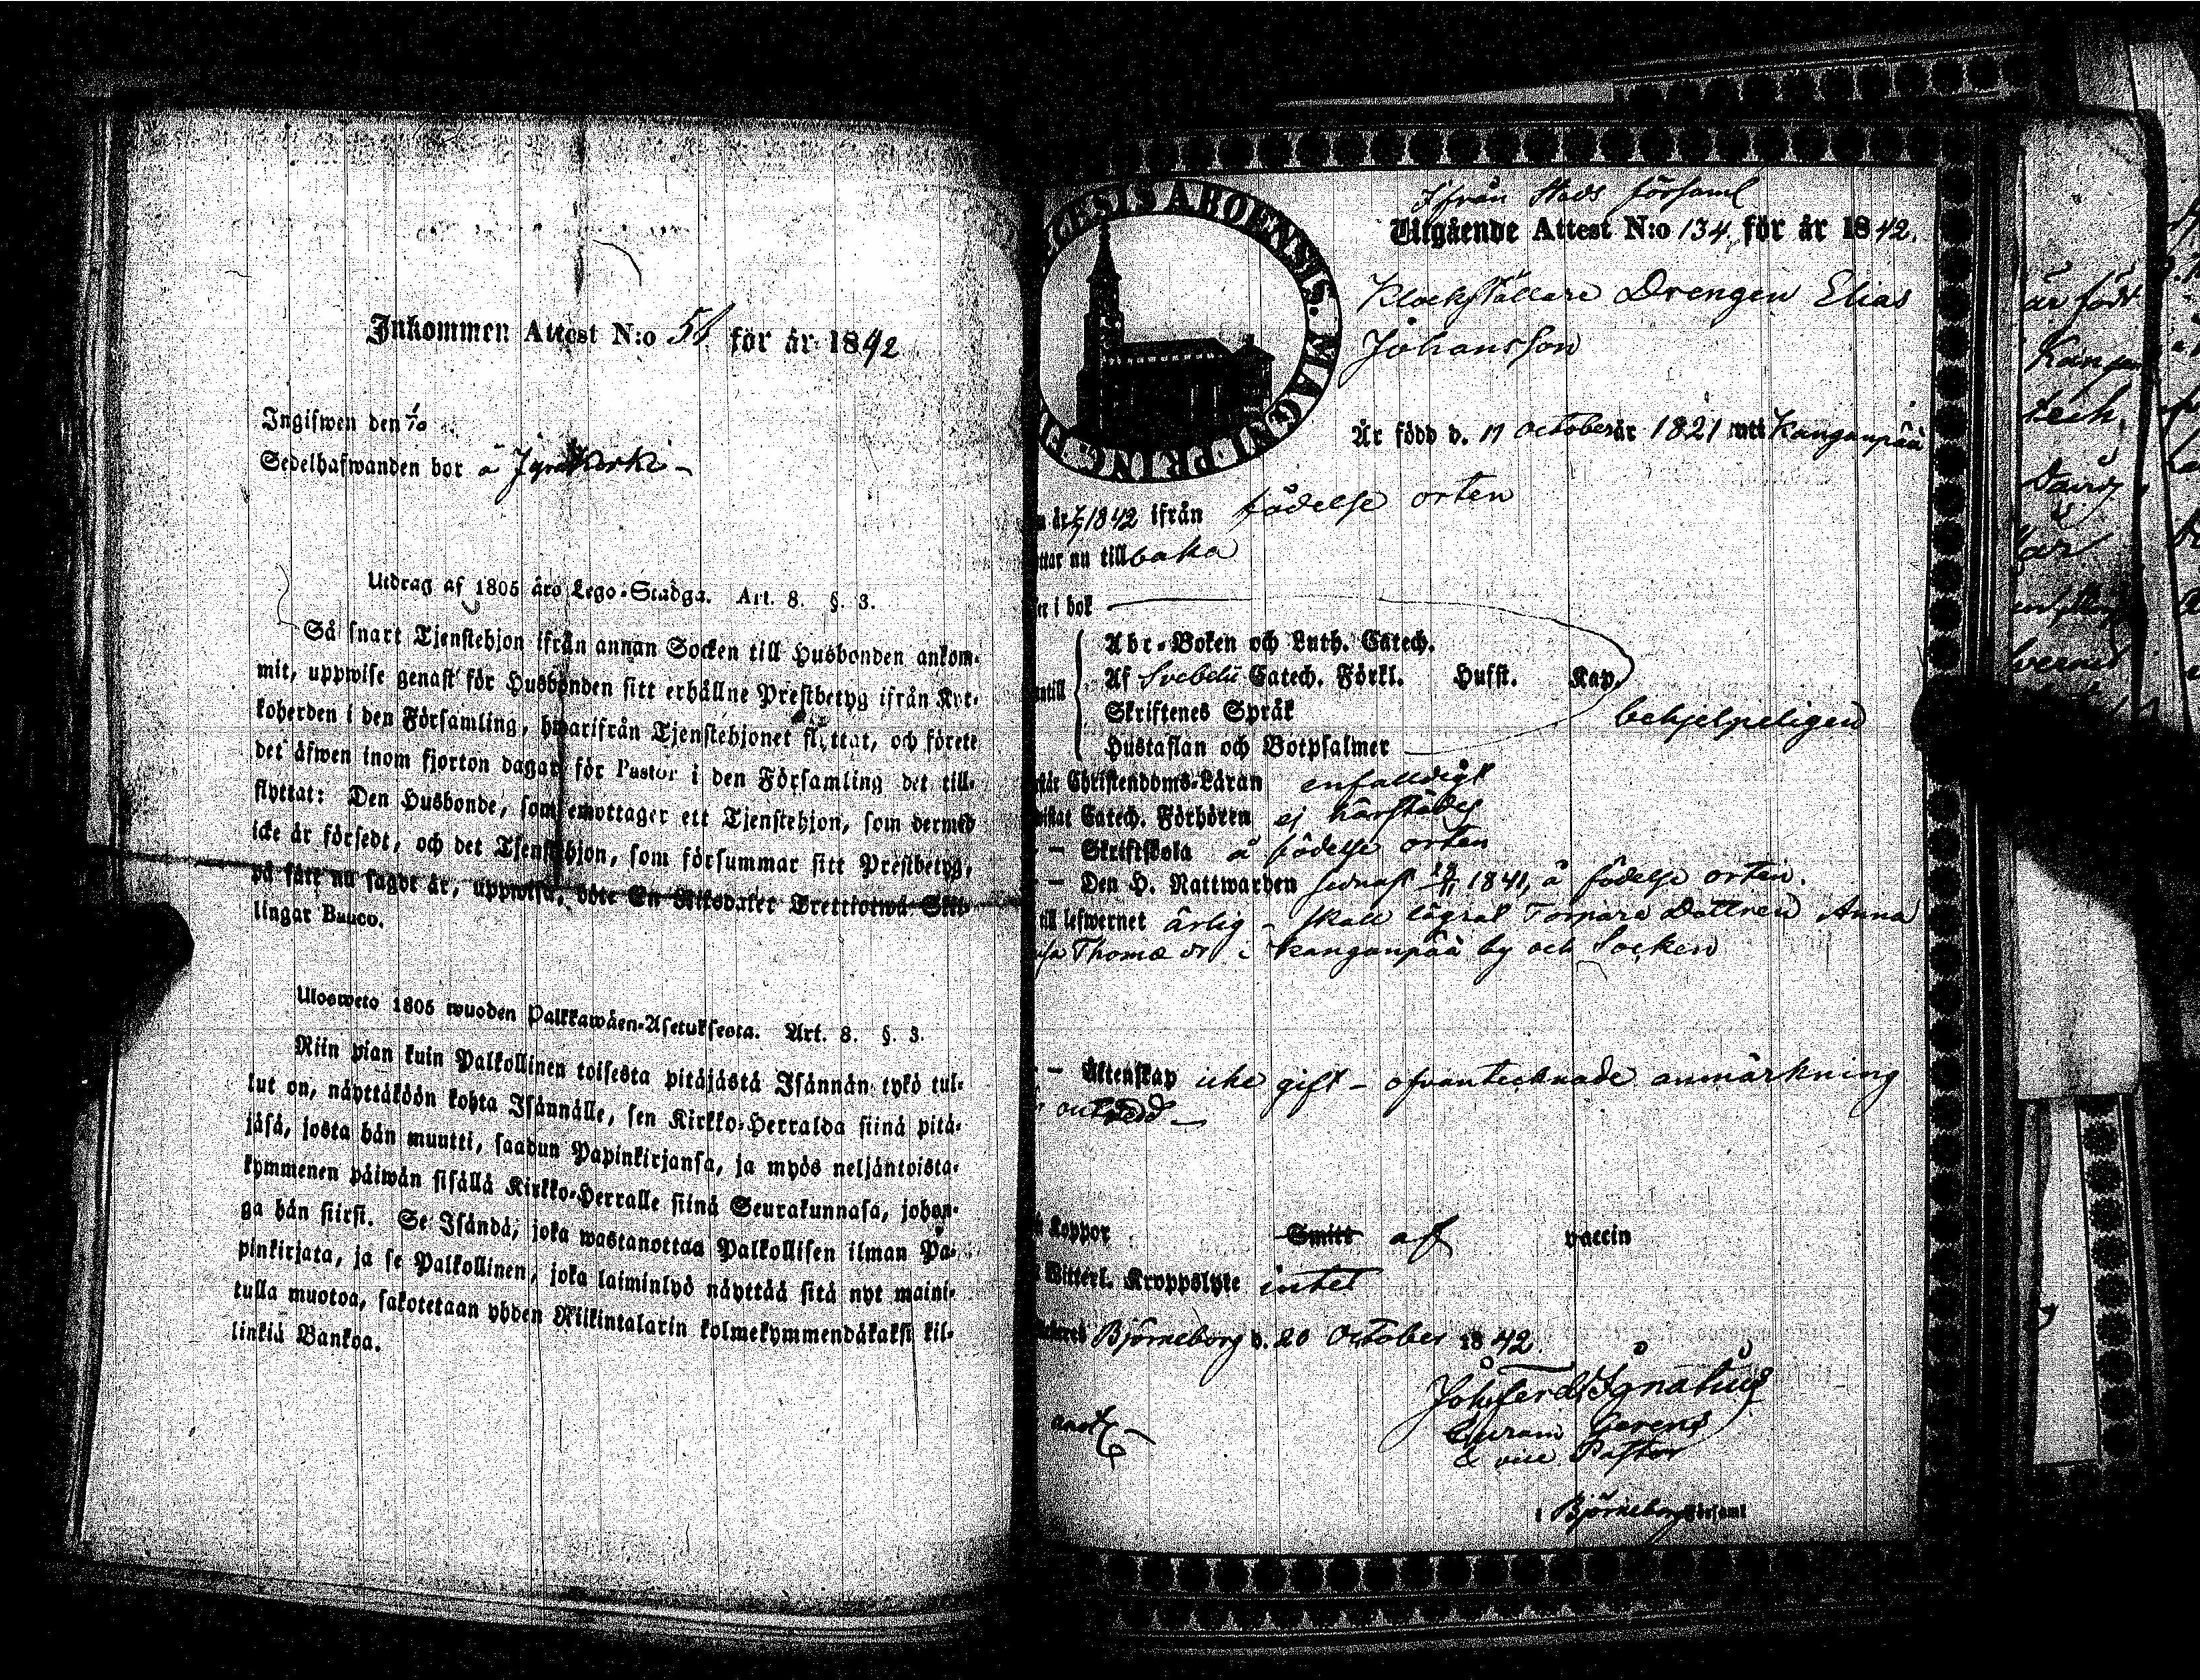 Inkommen Attest N:o 58 för år 1842
Ingifwen den
Sedelhafwanden bor å
Utdrag af 1805 års Lego-Stadga. Art. 8. §. 3.
Så snart Tjenstehjon ifrån annan Socken till Husbonden ankom-
mit, uppwise genast för Husbonden sitt erhållne Prestbetyg ifrån Kyr-
koherden i den Församling, hwarifrån Tjenstehjonet flyttat, och förete
det äfwen inom fjorton dagar för Pastor i den Församling det till-
flyttat: Den Husbonde, som emottager ett Tjenstehjon, som dermed
icke är försedt, och det Tjenstehjon, som försummar sitt Prestbetyg,
på sätt nu sagdt är, uppwisa, böte En Riksdaler Trettiotwå Skil-
lingar Banco.
Ulosweto 1805 wuoden Palkkawäen-Asetuksesta. Art. 8. §. 3.
Niin pian kuin Palkollinen toisesta pitäjästä Isännän tykö tul-
lut on, näyttäköön kohta Isännälle, sen Kirkko-Herralda siinä pitä-
jäsä, josta hän muutti, saadun Papinkirjansa, ja myös neljäntoista-
kymmenen päiwän sisällä Kirkko-Herralle siinä Seurakunnasa, johon-
ga hän siirsi. Se Isändä, joka wastanottaa Palkollisen ilman Pa-
pinkirjata, ja se Palkollinen, joka laiminlyö näyttää sitä nyt maini-
tulla muotoa, sakotetaan yhden Riikintalarin kolmekymmendäkaksi kil-
linkiä Bankoa.
GESIS ABOENSIS. MAGNI PRINC.
Ifrån Stads församl
Utgående Attest N:o 134 för år 1842.
Klockställare Drengen Elias
Johansson
Är född d. 17 October år 1821 uti Kanganpää
år 1842 ifrån födelse orten
nu tillbaka
i bok
Abc-Boken och Luth. Catech.
Af Svebelii Catech. Förkl. Husst. Kap.
Skriftenes Språk
Hustaflan och Botpsalmer
behjelpeligen
Christendoms-Läran enfalldigt
Catech. Förhören ej härstädes
– Skriftskola å födelse orten
– Den H. Nattwarden sednast 1841, å födelse orten.
till lefwernet ärlig – skall lägrat Torpare Dottren Anna
Thomæ dr i Kanganpää by och Socken
– Äktenskap icke gift – ofvantecknade anmärkning
Koppor Smitt af vaccin
Witterl. Kroppslyte intet
Björneborg d. 20 October 1842.
Joh. Ferd. Ignatius
Curam Gerens
& vice Pastor
i Björneborg församl